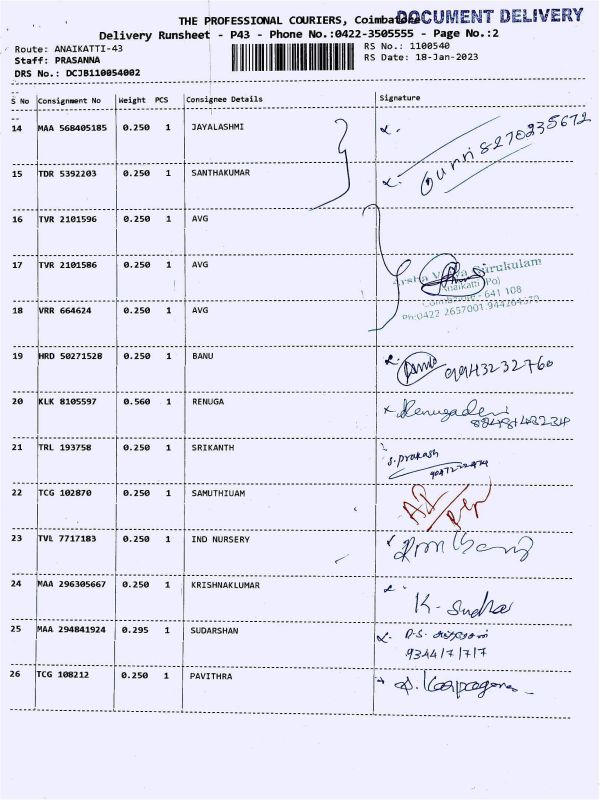 THE PROFESSIONAL COURIERS, Coimbatore
DOCUMENT DELIVERY
Delivery Runsheet - P43 - Phone No.:0422-3505555 - Page No.:2
Route: ANAIKATTI-43
RS No.: 1100540
Staff: PRASANNA
RS Date: 18-Jan-2023
DRS No.: DCJB110054002
S No Consignment No Weight PCS Consignee Details Signature
14 MAA 568405185 0.250 1 JAYALASHMI
8270235672
15 TDR 5392203 0.250 1 SANTHAKUMAR
16 TVR 2101596 0.250 1 AVG
17 TVR 2101586 0.250 1 AVG
Gurukulam
Anaikatti (Po)
Coimbatore - 641 108
Ph:0422 2657001
18 VRR 664624 0.250 1 AVG
19 HRD 50271528 0.250 1 BANU
9943232760
20 KLK 8105597 0.560 1 RENUGA
Renugadevi
21 TRL 193758 0.250 1 SRIKANTH
S. Prakash
22 TCG 102870 0.250 1 SAMUTHIUAM
23 TVL 7717183 0.250 1 IND NURSERY
24 MAA 296305667 0.250 1 KRISHNAKLUMAR
K. Sudha
25 MAA 294841924 0.295 1 SUDARSHAN
D.S.
26 TCG 108212 0.250 1 PAVITHRA